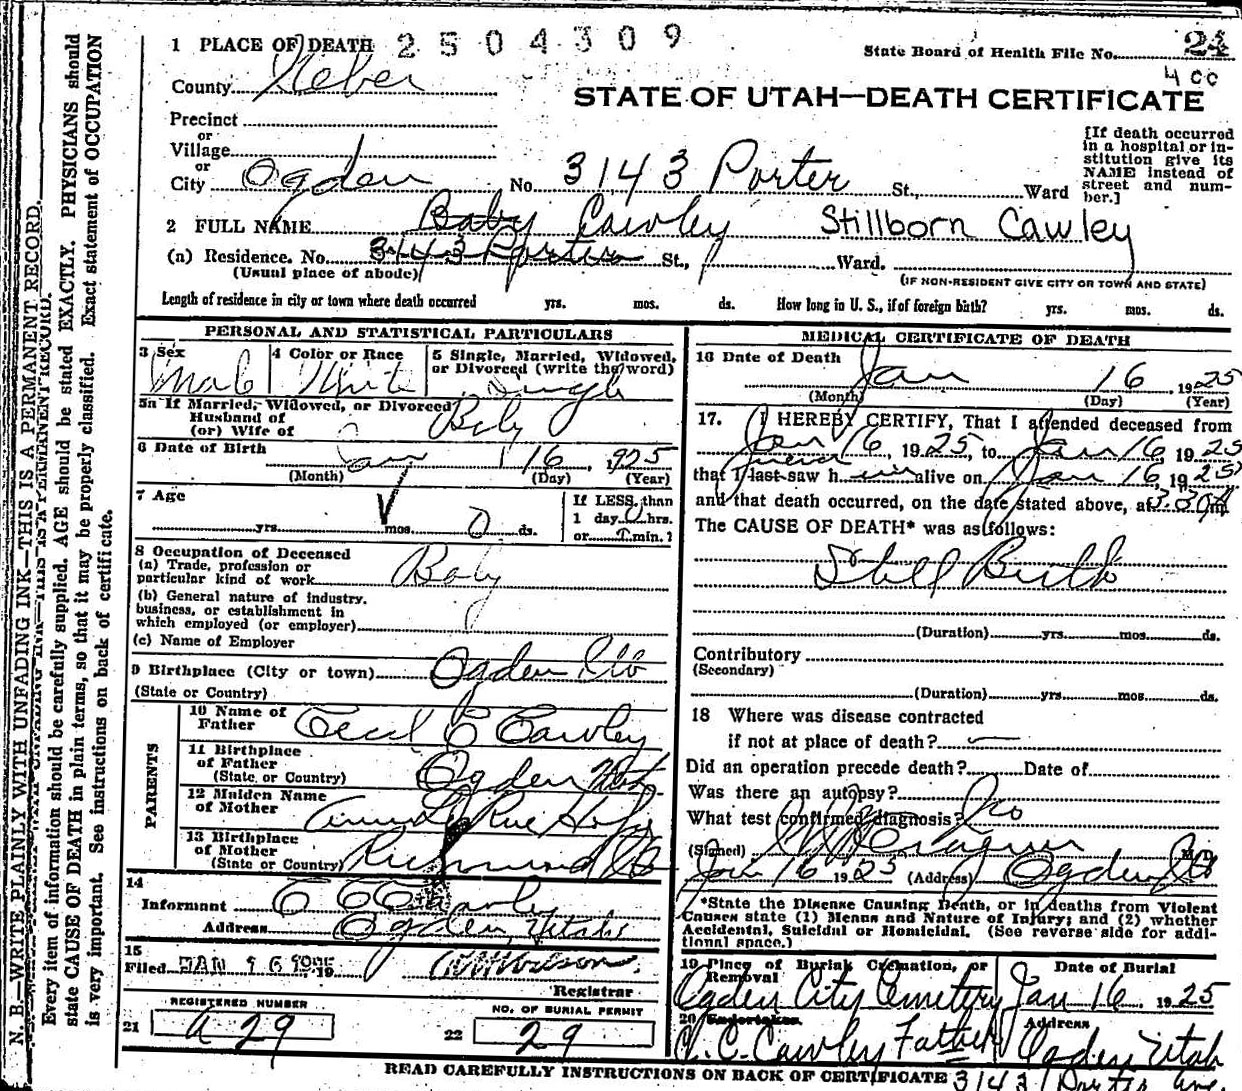 N. B.—WRITE PLAINLY WITH UNFADING INK—THIS IS A PERMANENT RECORD.
Every item of information should be carefully supplied. AGE should be stated EXACTLY. PHYSICIANS should
state CAUSE OF DEATH in plain terms, so that it may be properly classified. Exact statement of OCCUPATION
is very important. See instructions on back of certificate.
1 PLACE OF DEATH 2504309
State Board of Health File No. 24
400
County Weber
STATE OF UTAH—DEATH CERTIFICATE
Precinct
or
Village
or
City Ogden No 3143 Porter St., Ward
[If death occurred
in a hospital or in-
stitution give its
NAME instead of
street and num-
ber.]
2 FULL NAME Baby Cawley Stillborn Cawley
(a) Residence. No. 3143 Porter St., Ward.
(Usual place of abode) (IF NON-RESIDENT GIVE CITY OR TOWN AND STATE)
Length of residence in city or town where death occurred yrs. mos. ds. How long in U. S., if of foreign birth? yrs. mos. ds.
PERSONAL AND STATISTICAL PARTICULARS
3 Sex Male
4 Color or Race White
5 Single, Married, Widowed,
or Divorced (write the word)
Single
5a If Married, Widowed, or Divorced
Husband of
(or) Wife of Baby
6 Date of Birth Jan 16, 1925
(Month) (Day) (Year)
7 Age
yrs. mos. 0 ds.
If LESS than
1 day 0 hrs.
or min.?
8 Occupation of Deceased
(a) Trade, profession or
particular kind of work Baby
(b) General nature of industry.
business, or establishment in
which employed (or employer)
(c) Name of Employer
9 Birthplace (City or town) Ogden
(State or Country)
PARENTS
10 Name of
Father Cecil C Cawley
11 Birthplace
of Father Ogden
(State or Country)
12 Maiden Name
of Mother Rue
13 Birthplace
of Mother Richmond
(State or Country)
14
Informant Cawley
Address Ogden, Utah
15
Filed JAN 19
Registrar
REGISTERED NUMBER
21 a 29
NO. OF BURIAL PERMIT
22 29
MEDICAL CERTIFICATE OF DEATH
16 Date of Death Jan 16, 1925
(Month) (Day) (Year)
17. I HEREBY CERTIFY, That I attended deceased from
Jan 16, 1925, to Jan 16 1925
that I last saw h alive on Jan 16, 1925
and that death occurred, on the date stated above, at 3.30 m
The CAUSE OF DEATH* was as follows:
Still Birth
(Duration) yrs. mos. ds.
Contributory
(Secondary)
(Duration) yrs. mos. ds.
18 Where was disease contracted
if not at place of death?
Did an operation precede death? Date of
Was there an autopsy?
What test confirmed diagnosis? No
(Signed) M. D.
Jan 16 1925 (Address) Ogden
*State the Disease Causing Death, or in deaths from Violent
Causes state (1) Means and Nature of Injury; and (2) whether
Accidental, Suicidal or Homicidal. (See reverse side for addi-
tional space.)
19 Place of Burial, Cremation, or
Removal
Date of Burial
Ogden City Cemetery Jan 16. 1925
20 Undertaker
Address
C. Cawley Father Ogden Utah
READ CAREFULLY INSTRUCTIONS ON BACK OF CERTIFICATE 3143